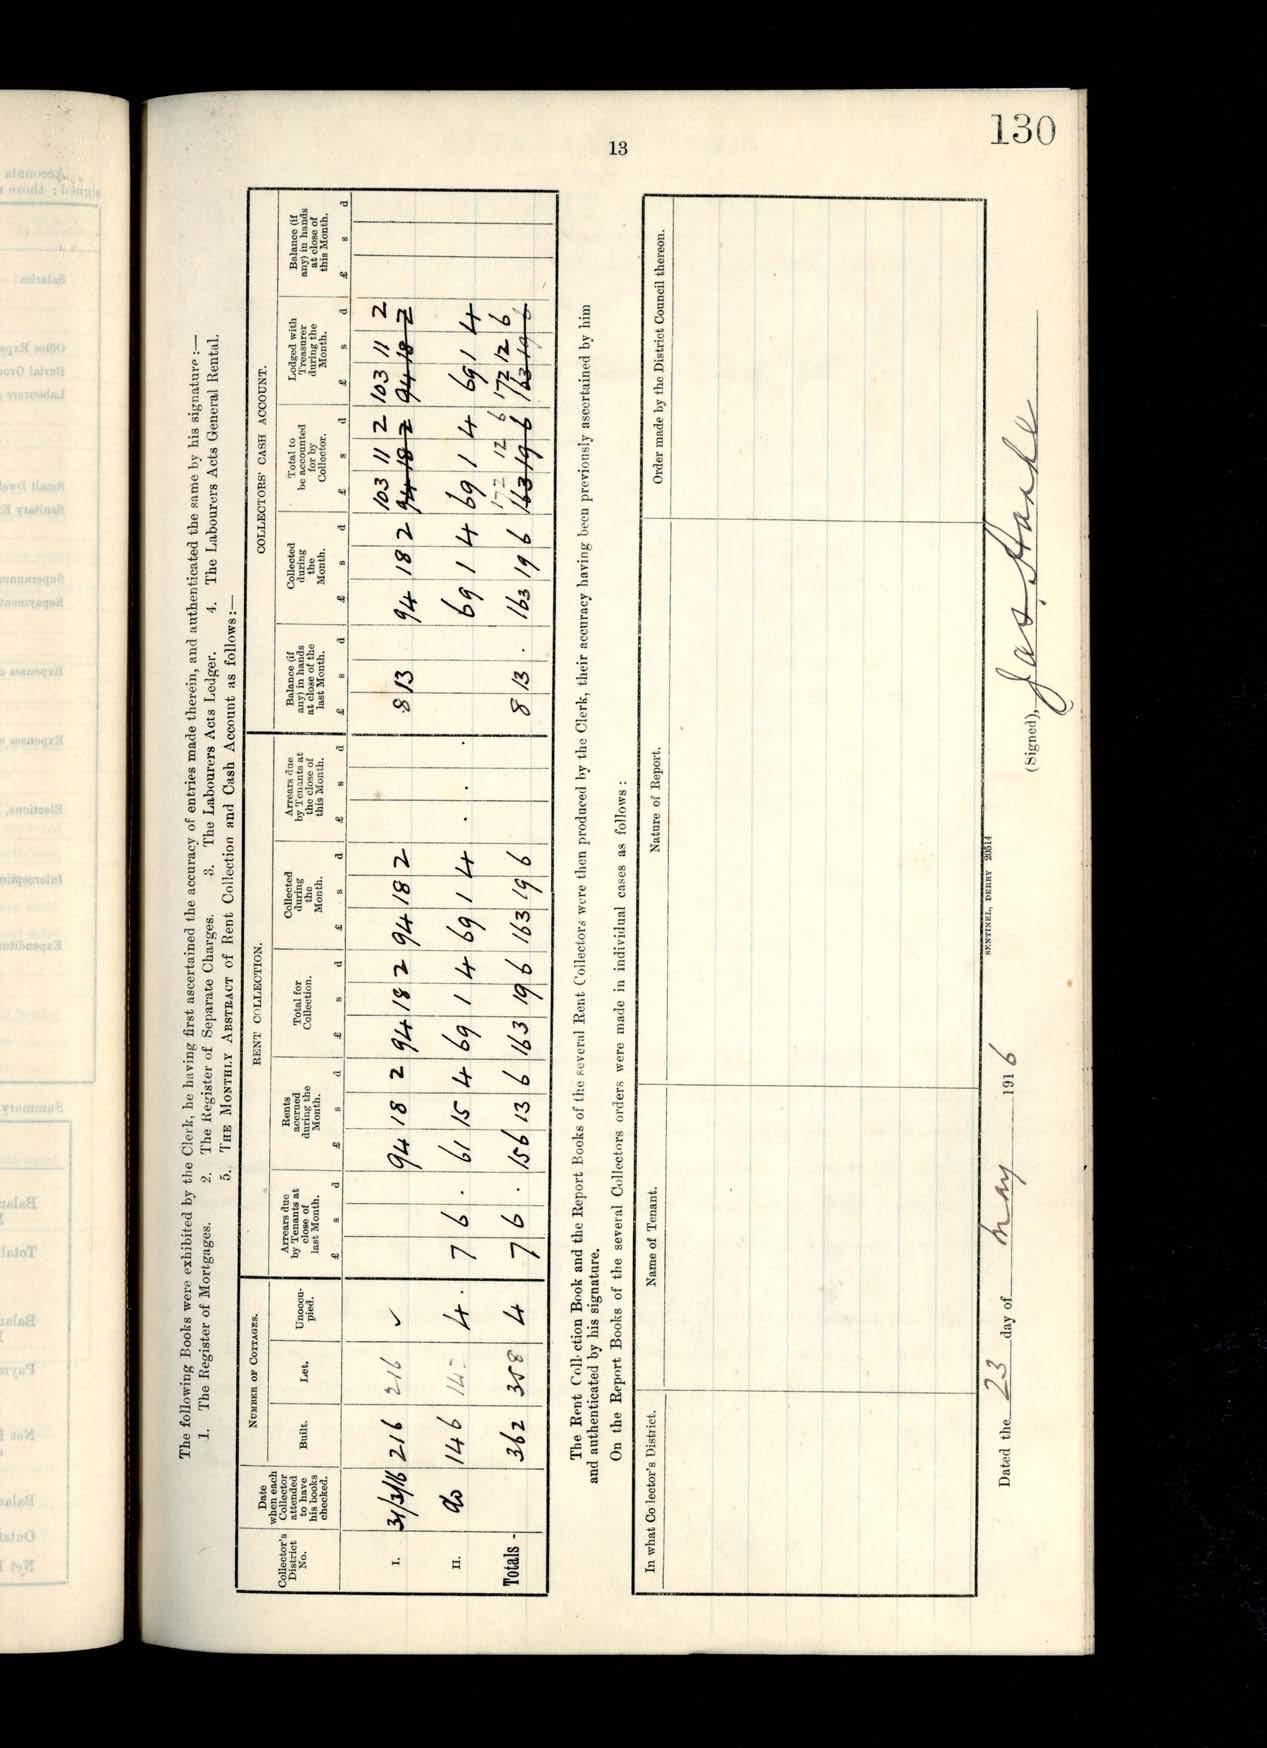 130
13
The following Books were exhibited by the Clerk, he having first ascertained the accuracy of entries made therein, and authenticated the same by his signature :—
1. The Register of Mortgages. 2. The Register of Separate Charges. 3. The Labourers Acts Ledger. 4. The Labourers Acts General Rental.
5. THE MONTHLY ABSTRACT of Rent Collection and Cash Account as follows :—
NUMBER OF COTTAGES. RENT COLLECTION. COLLECTORS' CASH ACCOUNT.
Collector's District No. Date when each Collector attended to have his books checked. Built. Let. Unoccupied. Arrears due by Tenants at close of last Month. Rents accrued during the Month. Total for Collection. Collected during the Month. Arrears due by Tenants at the close of this Month. Balance (if any) in hands at close of the last Month. Collected during the Month. Total to be accounted for by Collector. Lodged with Treasurer during the Month. Balance (if any) in hands at close of this Month.
£ s d £ s d £ s d £ s d £ s d £ s d £ s d £ s d £ s d £ s d
103 11 2 103 11 2
I. 31/3/16 216 216 ✓ 94 18 2 94 18 2 94 18 2 8 13 94 18 2 94 18 2 94 18 2
II. do 146 4 . 7 6 . 61 15 4 69 1 4 69 1 4 . . . 69 1 4 69 1 4 69 1 4
172 12 6 172 12 6
Totals - 362 358 4 7 6 . 156 13 6 163 19 6 163 19 6 8 13 . 163 19 6 163 19 6 163 19 6
The Rent Collection Book and the Report Books of the several Rent Collectors were then produced by the Clerk, their accuracy having been previously ascertained by him
and authenticated by his signature.
On the Report Books of the several Collectors orders were made in individual cases as follows :
In what Collector's District. Name of Tenant. Nature of Report. Order made by the District Council thereon.
SENTINEL, DERRY 20514
Dated the 23 day of May 1916 (Signed), Jas.